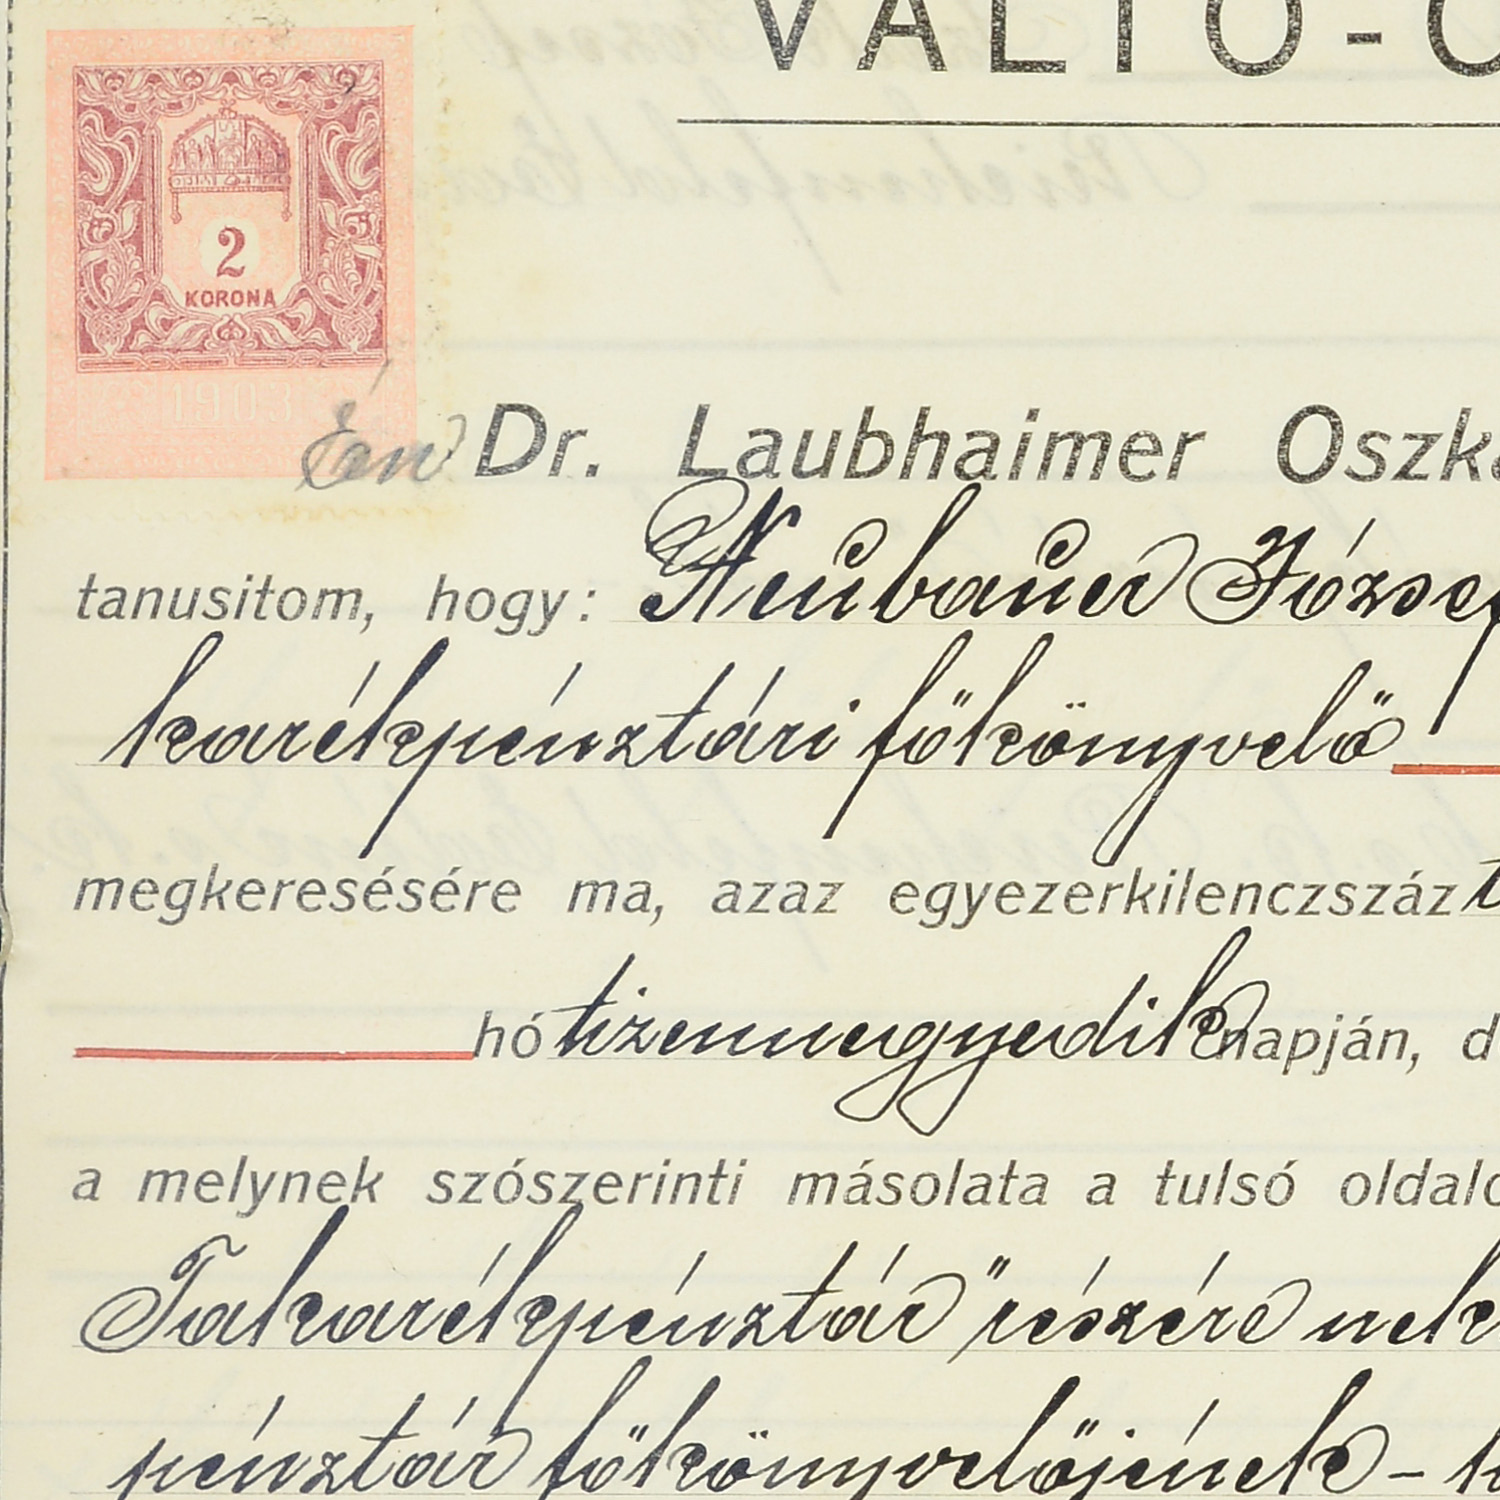 VÁLTÓ-
2
KORONA
1903
Én Dr. Laubhaimer Oszk
tanusitom, hogy: Neubauer József
karékpénztári főkönyvelő
megkeresésére ma, azaz egyezerkilenczszáz
hó tizennegyedik napján, d
a melynek szószerinti másolata a tulsó oldal
Takarékpénztár" részére nek
pénztár főkönyvelőjének -